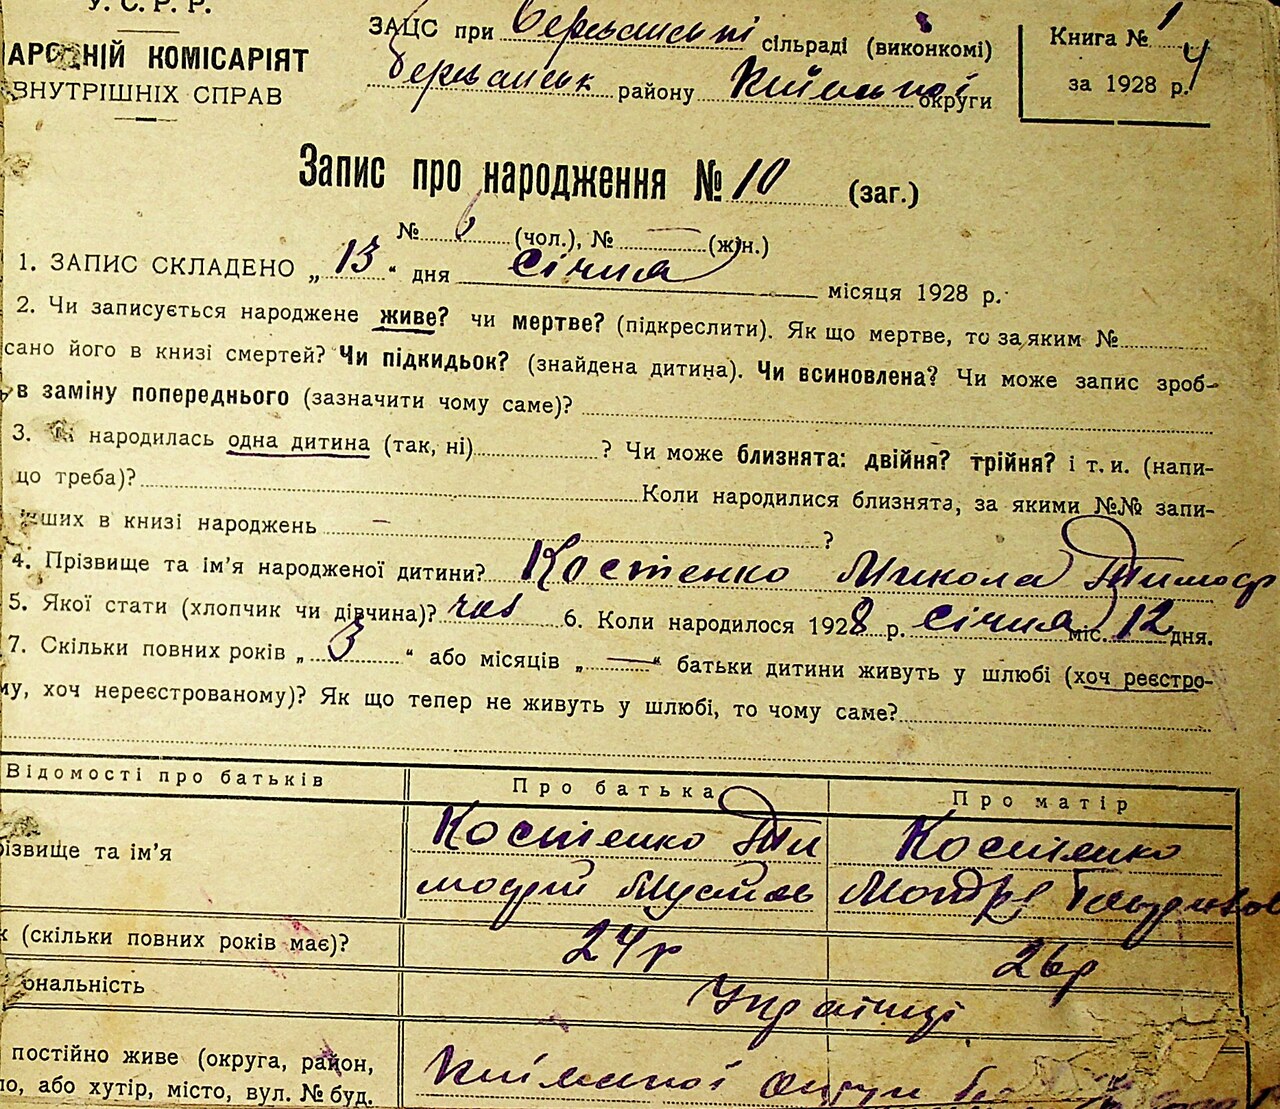 У. С. Р. Р.
АРОДНІЙ КОМІСАРІЯТ
ВНУТРІШНІХ СПРАВ
ЗАЦС при сільраді (виконкомі)
району округи
Книга № 1
за 1928 р.
Запис про народження № 10 (заг.)
№ (чол.), № — (жін.)
1. ЗАПИС СКЛАДЕНО „ 13 “ дня січня місяця 1928 р.
2. Чи записується народжене живе? чи мертве? (підкреслити). Як що мертве, то за яким №
сано його в книзі смертей? Чи підкидьок? (знайдена дитина). Чи всиновлена? Чи може запис зроб-
в заміну попереднього (зазначити чому саме)?
3. народилась одна дитина (так, ні) ? Чи може близнята: двійня? трійня? і т. и. (напи-
що треба)? Коли народилися близнята, за якими №№ запи-
інших в книзі народжень — ?
4. Прізвище та ім’я народженої дитини? Костенко Микола Тимоф
5. Якої стати (хлопчик чи дівчина)? 6. Коли народилося 1928 р. січня міс. 12 дня.
7. Скільки повних років „ 3 “ або місяців „ — “ батьки дитини живуть у шлюбі (хоч реєстро-
му, хоч нереєстрованому)? Як що тепер не живуть у шлюбі, то чому саме?
Відомості про батьків Про батька Про матір
різвище та ім’я Костенко Ти Костенко
мофій
к (скільки повних років має)? 24 р 26 р
ональність Українці
постійно живе (округа, район,
ло, або хутір, місто, вул. № буд. округи